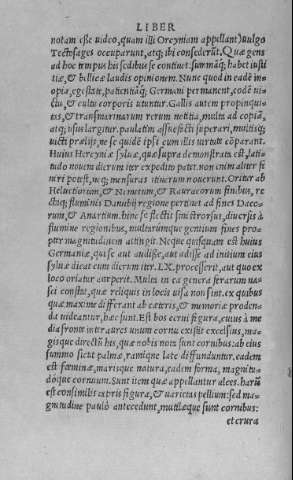 LIBER
notam esse video, quam illi Orcyniam appellant) Volgo
Tectosages occuparunt, atq; ibi consederūt. Quæ gens
ad hoc tempus his sedibus se continet. summāq; habet iusti
tiæ, & bellicæ laudis opinionem. Nunc quod in eadē ino
pia, egestate, patientiāq; Germani permanent, eodē vi-
ctu, & cultu corporis utuntur. Gallis autem propinqui
tas, & transmarinarum rerum notitia, multa ad copiā,
atq; usus largitur. paulatim assuefacti superari, multisq;
victi prælijs, ne se quidē ipsi cum illis virtute cōparant.
Huius Hercyniæ sylvæ, quæ supra demonstrata est, lati
tudo novem dierum iter expedito patet. non enim aliter fi
niri potest, neq; mensuras itinerum noverunt. Oritur ab
Helvetiorum, & Nemetum, & Rauracorum finibus, re
ctaq; fluminis Danubij regione pertinet ad fines Daco-
rum, & Anartium. hinc se flectit sinistrorsus, diversis à
flumine regionibus, multarumque gentium fines pro-
pter magnitudinem attingit. Neque quisquam est huius
Germaniæ, qui se aut audisse, aut adisse ad initium eius
sylvæ dicat cum dierum iter. LX. processerit, aut quo ex
loco oriatur acceperit. Multa in ea genera ferarum na-
sci constat, quæ reliquis in locis visa non sint. ex quibus
quæ maxime differant ab cæteris, & memoriæ proden-
da videantur, hæc sunt. Est bos cervi figura, cuius à me
dia fronte inter aures unum cornu existit excelsius, ma-
gis que directū his, quæ nobis nota sunt cornibus: ab eius
summo sicut palmæ, ramique late diffunduntur. eadem
est fœminæ, marisque natura, eadem forma, magnitu-
doque cornuum. Sunt item quæ appellantur alces. harū
est consimilis capris figura, & varietas pellium: sed ma-
gnitudine paulò antecedunt, mutilæque sunt cornibus:
et crura